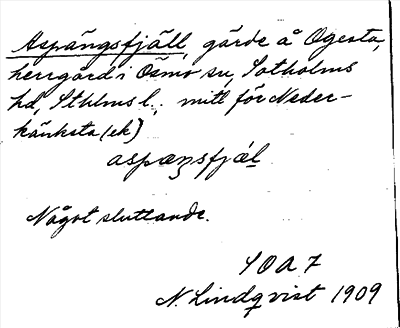 Aspängsfjäll, gärde å Ogesta,
herrgård i Ösmo sn, Sotholms
hd, Sthlms l., mitt för Neder-
känksta (ek)
aspæŋsfjæl
Något sluttande.
SOA 7
N. Lindqvist 1909